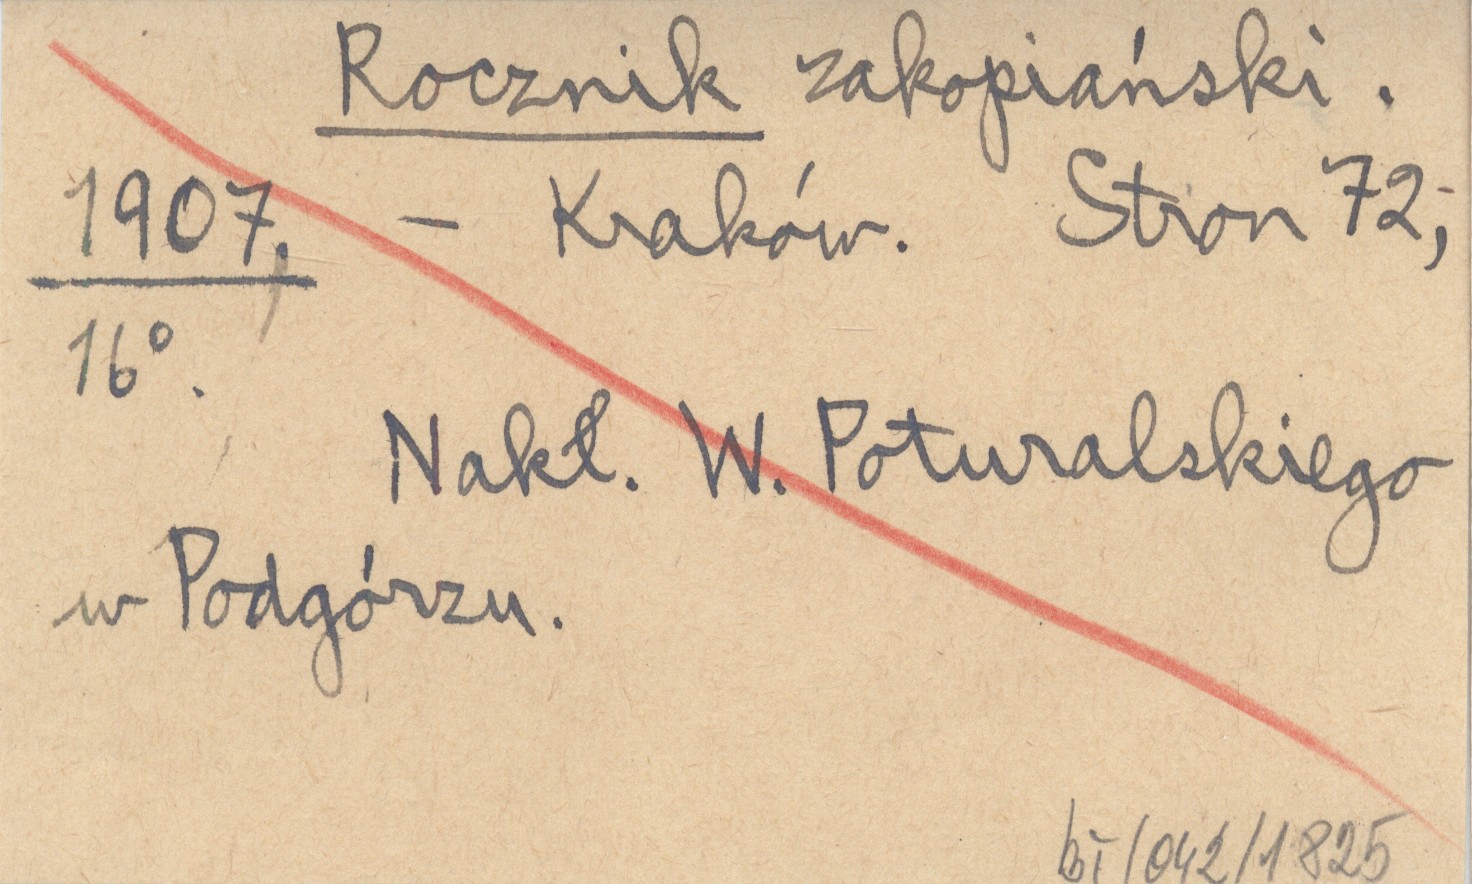 Rocznik zakopiański.
1907, – Kraków. Stron 72;
16°.
Nakł. W. Poturalskiego
w Podgórzu.
bī/042/1825